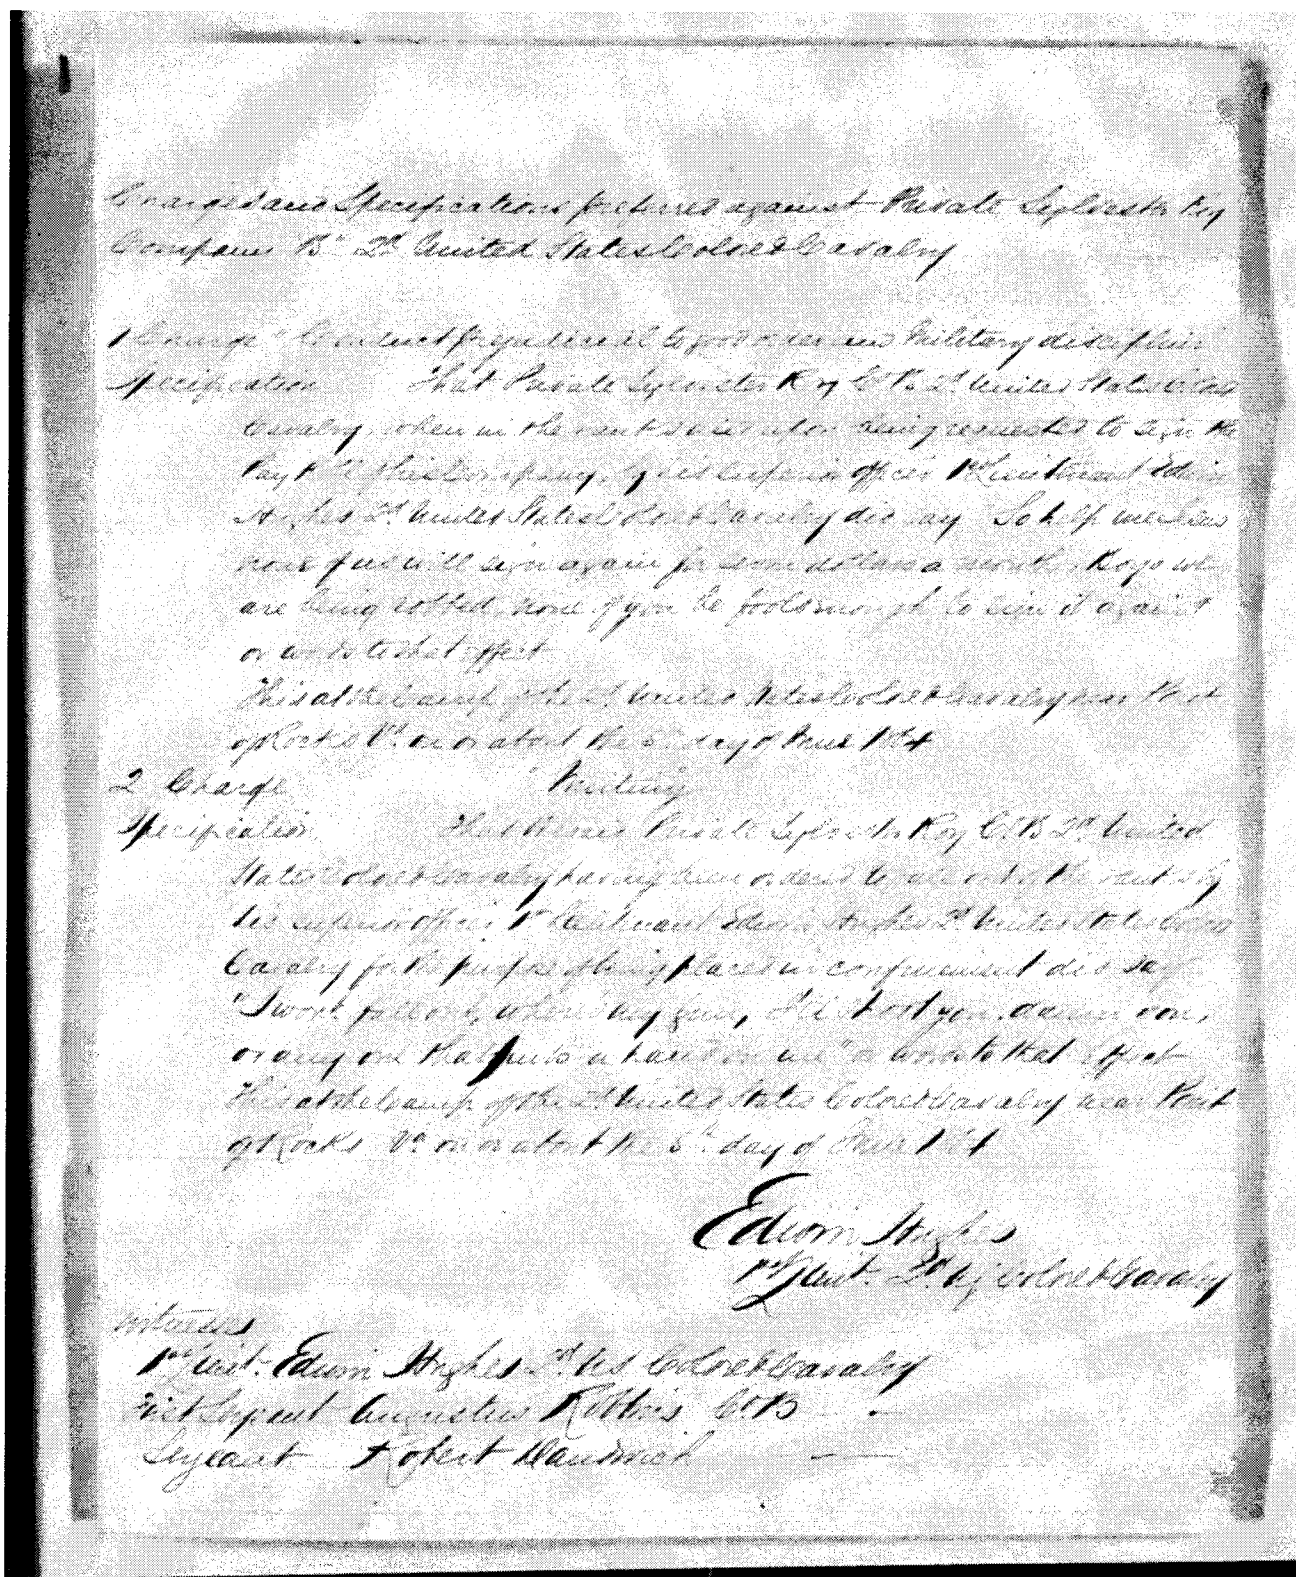 Charges and Specifications preferred against Private Sylvester Roy
Company "B" 2d United States Colored Cavalry
1 Charge "Conduct prejudicial to good order and Military discipline
Specification That Private Sylvester Roy Co B 2d United States Colored
Cavalry, when in the ranks and upon being requested to sign the
Pay Roll of his Company, by his superior officer 1st Lieutenant Edwin
Hughes 2d United States Colored Cavalry did say "So help me
none of us will sign again for seven dollars a month, Boys we
are being robbed, none of you be fools enough to sign it again"
or words to that effect
This at the Camp of the 2d United States Colored Cavalry near Point
of Rocks Va on or about the 5th day of June 1864
2 Charge "Mutiny
Specification That Private Sylvester Roy Co B 2d United
States Colored Cavalry having been ordered to fall out of the ranks by
his superior officer 1st Lieutenant Edwin Hughes 2d United States Colored
Cavalry for the purpose of being placed in confinement did say
"I wont fall out, where's my gun, I'll shoot you, damn you,
or any one that puts a hand on me" or words to that effect
This at the Camp of the 2d United States Colored Cavalry near Point
of Rocks Va on or about the 5th day of June 1864
Edwin Hughes
1st Lieut. 2d US Colored Cavalry
Witnesses
1st Lieut. Edwin Hughes 2d US Colored Cavalry
First Sergeant Augustus Robbins Co B
Sergeant Robert